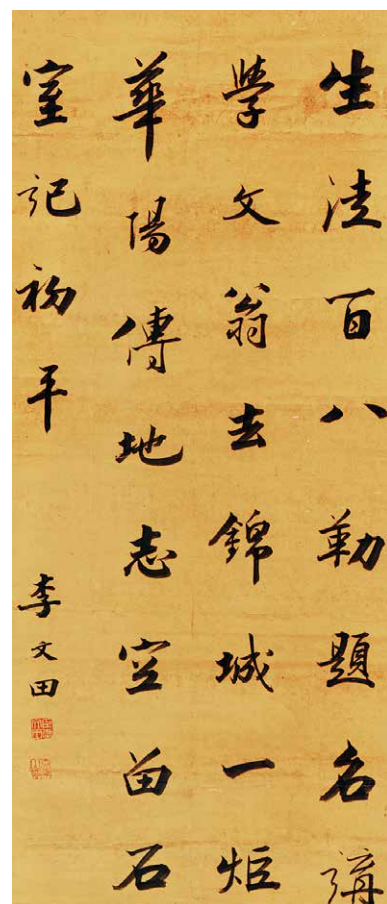 生徒百八勒題名講
學文翁去錦城一炬
華陽傳地志空留石
室記初平
李文田